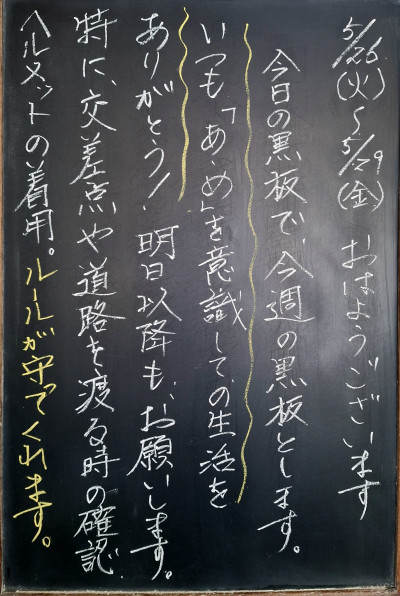 5/26(火)~5/29(金) おはようございます
今日の黒板で、今週の黒板とします。
いつも「あ・め」を意識しての生活を
ありがとう!明日以降も、お願いします。
特に、交差点や道路を渡る時の確認、
ヘルメットの着用。ルールが守ってくれます。